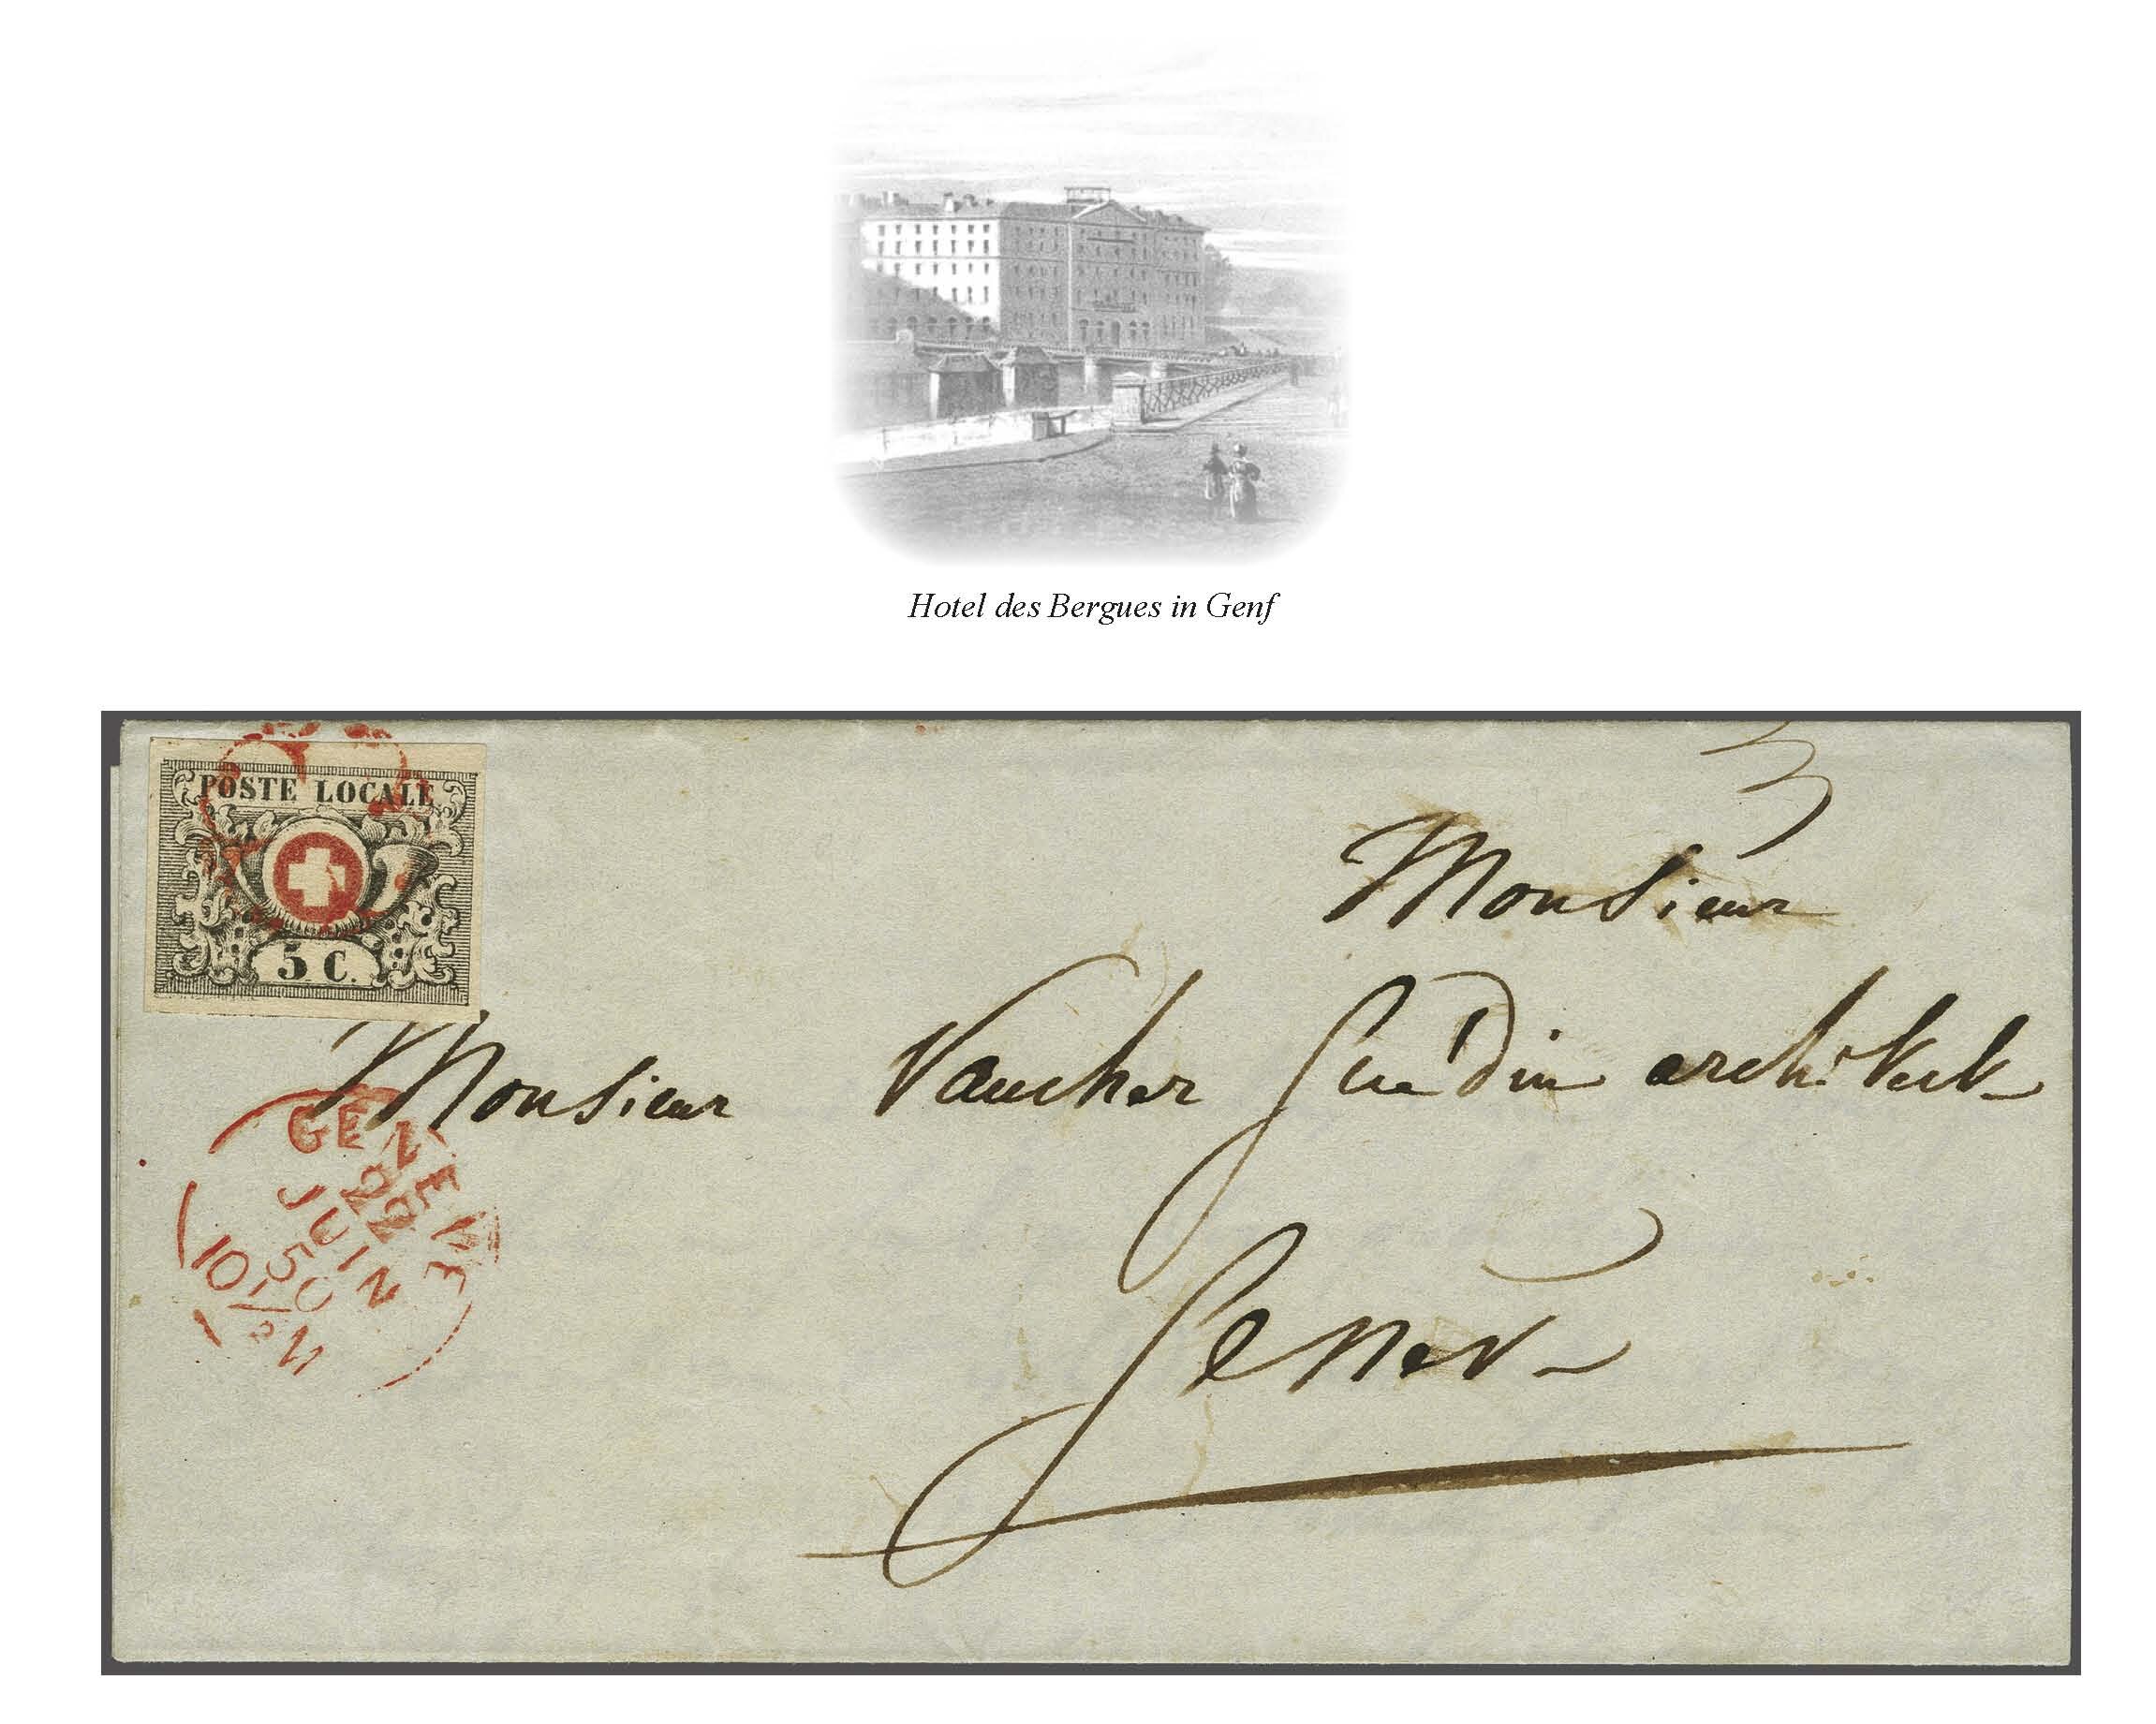 Hotel des Bergues in Genf
POSTE LOCALE
5 C.
Monsieur
Monsieur Vaucher Guédin architect
Genève
GENEVE
22
JUIN
50
10